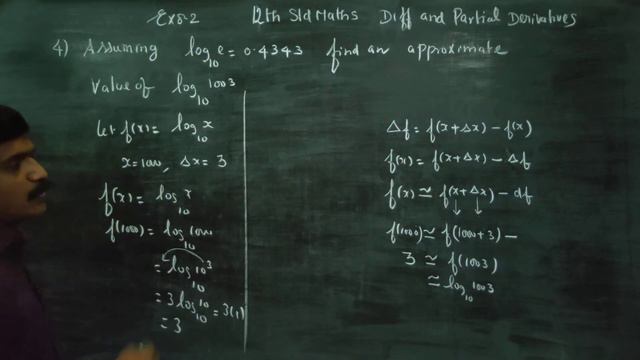 Ex 8.2 12th Std Maths Diff and Partial Derivatives
4) Assuming log₁₀ e = 0.4343 find an approximate
Value of log₁₀ 1003
let f(x) = log₁₀ x
x = 1000, Δx = 3
f(x) = log₁₀ x
f(1000) = log₁₀ 1000
= log₁₀ 10³
= 3 log₁₀ 10 = 3(1)
= 3
Δf = f(x+Δx) − f(x)
f(x) = f(x+Δx) − Δf
f(x) ≃ f(x+Δx) − df
f(1000) ≃ f(1000+3) −
3 ≃ f(1003)
≃ log₁₀ 1003